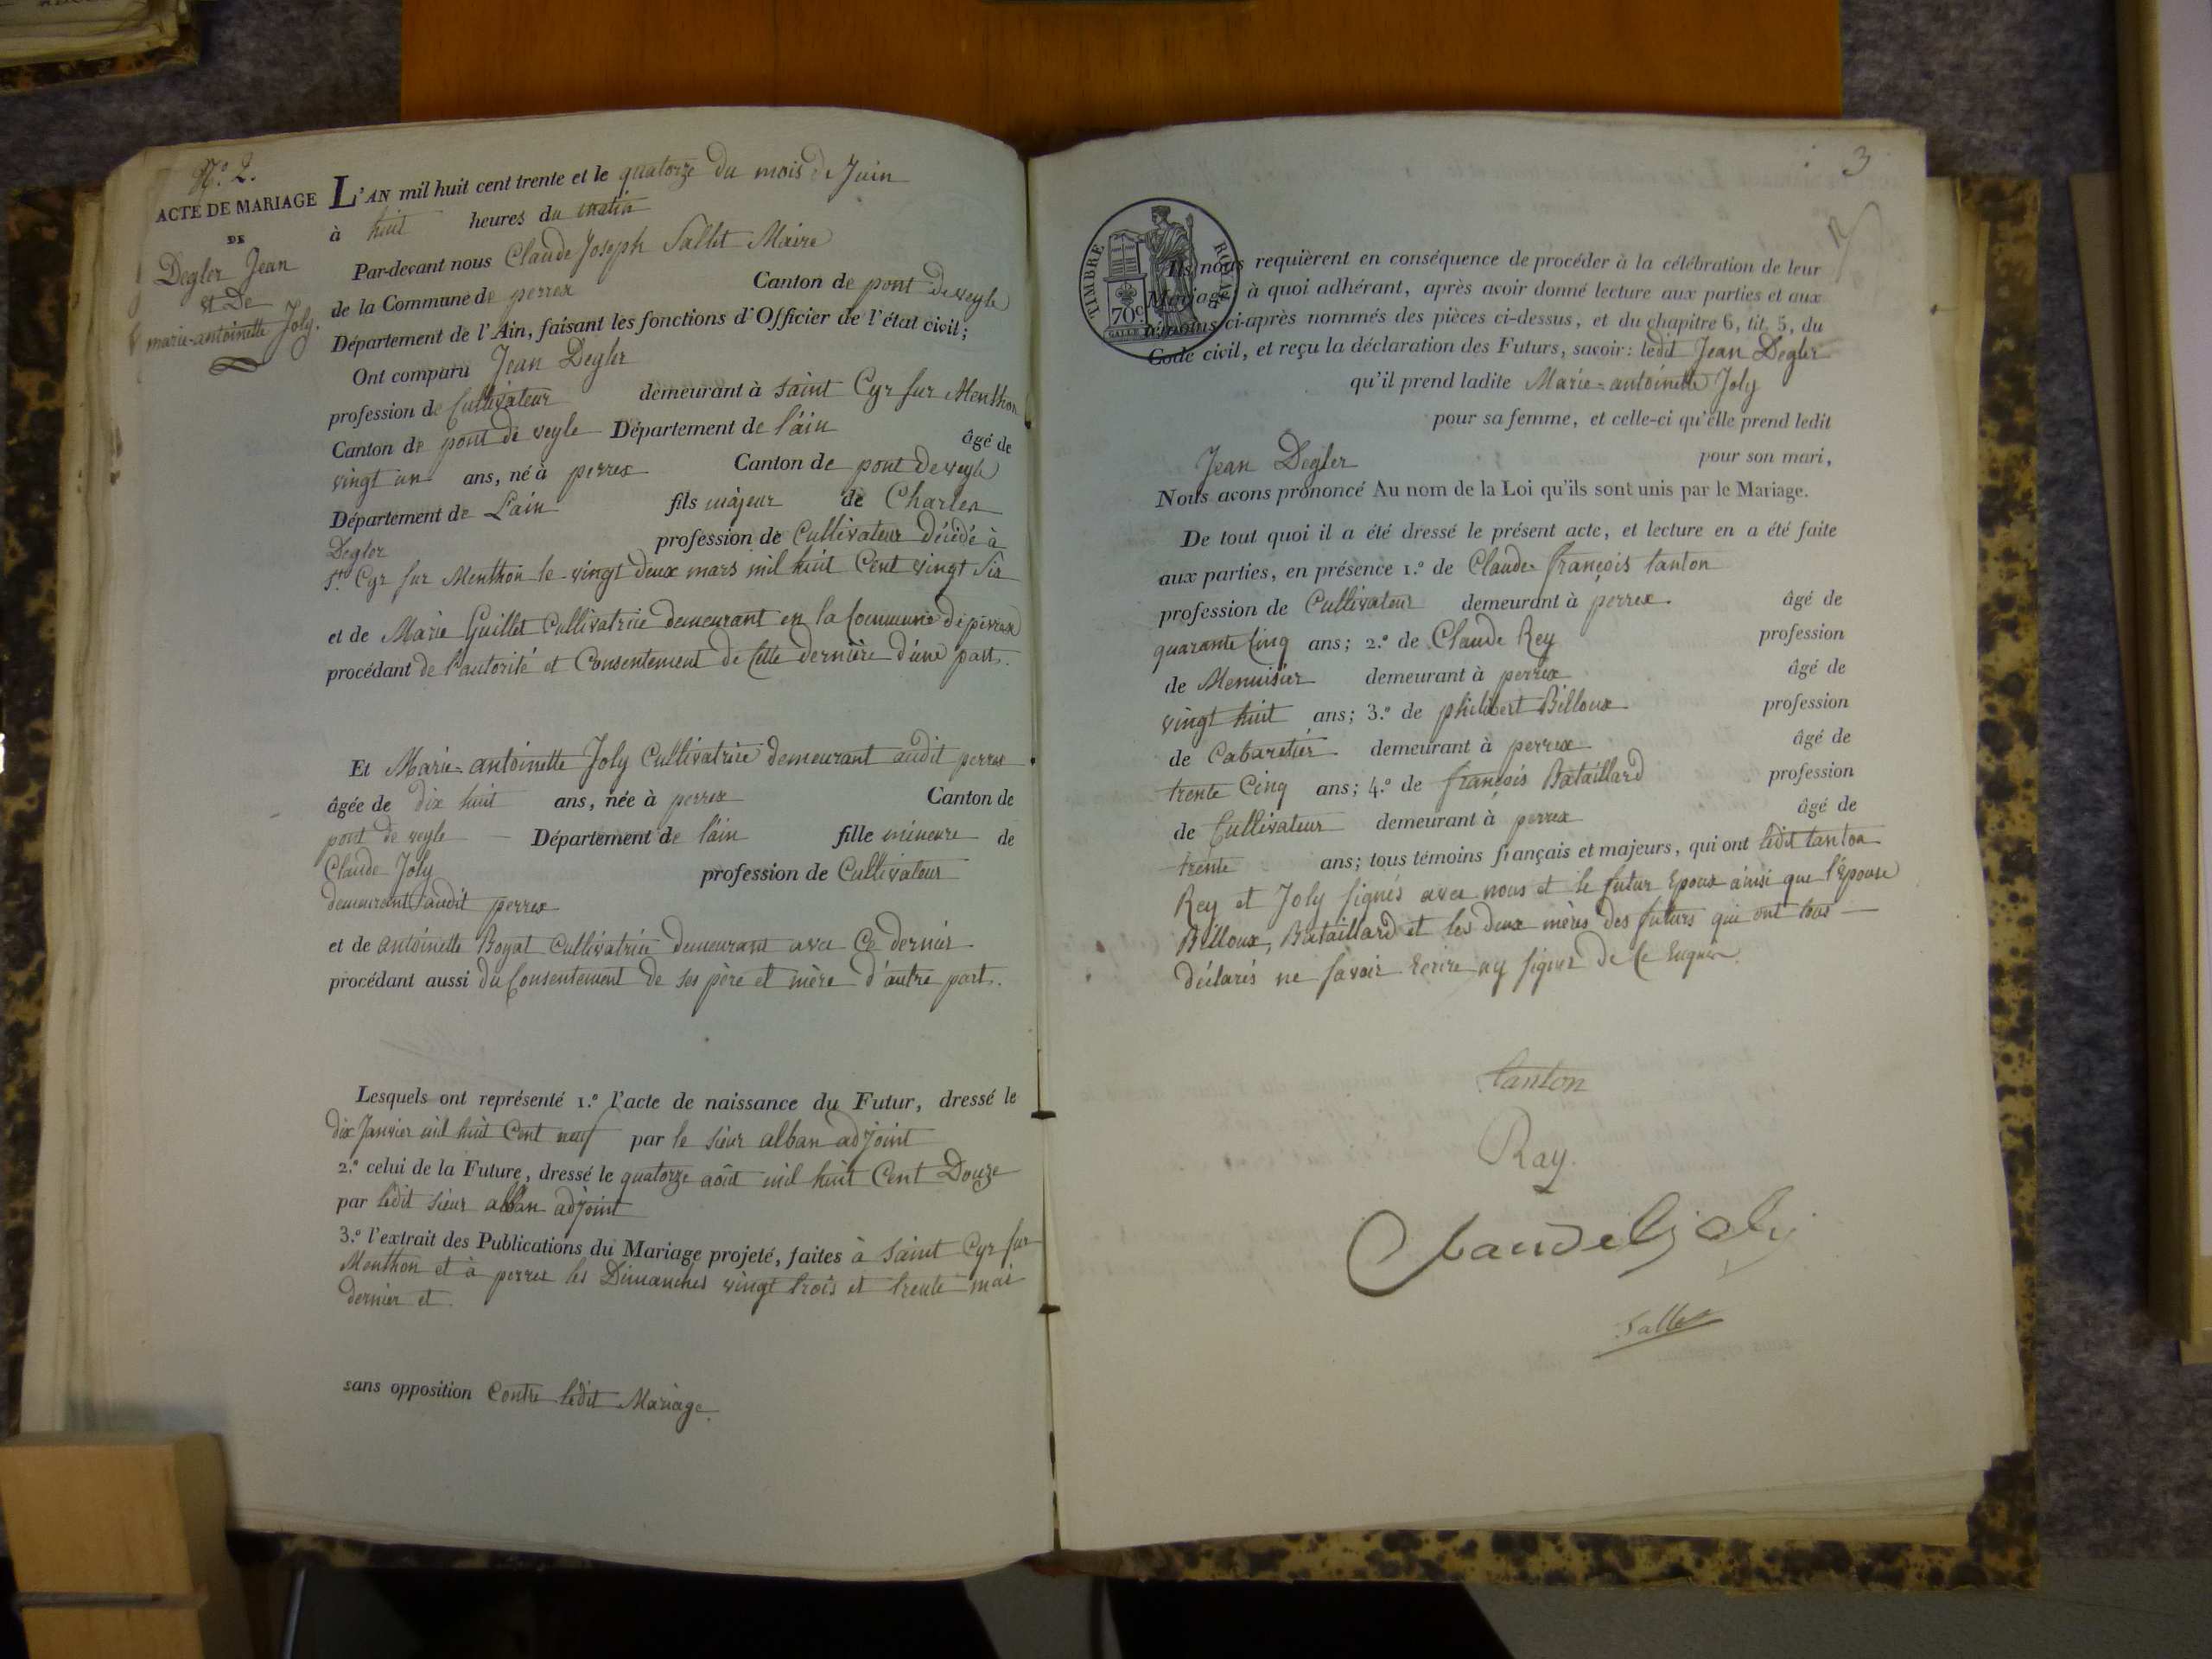 N.o 2.
ACTE DE MARIAGE
DE
Degler Jean
et De
marie-antoinette Joly.
L'AN mil huit cent trente et le quatorze du mois de Juin
à huit heures du matin
Par-devant nous Claude Joseph Sallet Maire
de la Commune de perrex Canton de pont de veyle
Département de l'Ain, faisant les fonctions d'Officier de l'état civil;
Ont comparu Jean Degler
profession de Cultivateur demeurant à saint Cyr sur Menthon
Canton de pont de veyle Département de l'ain âgé de
vingt un ans, né à perrex Canton de pont de veyle
Département de L'ain fils majeur de Charles
Degler profession de Cultivateur décédé à
St. Cyr sur Menthon le vingt deux mars mil huit Cent vingt six
et de Marie Guillet Cultivatrice demeurant en la Commune de perrex
procédant de l'autorité et Consentement de Cette dernière d'une part.
Et Marie-antoinette Joly Cultivatrice demeurant audit perrex
âgée de dix huit ans, née à perrex Canton de
pont de veyle Département de l'ain fille mineure de
Claude Joly profession de Cultivateur
demeurant audit perrex
et de antoinette Boyat Cultivatrice demeurant avec Ce dernier
procédant aussi du Consentement de ses père et mère d'autre part.
Lesquels ont représenté 1.o l'acte de naissance du Futur, dressé le
dix Janvier mil huit Cent neuf par le sieur alban adjoint
2.o celui de la Future, dressé le quatorze août mil huit Cent Douze
par ledit sieur alban adjoint
3.o l'extrait des Publications du Mariage projeté, faites à saint Cyr sur
Menthon et à perrex les Dimanches vingt trois et trente mai
dernier et
sans opposition Contre ledit Mariage.
3
TIMBRE ROYAL
70c
Ils nous requièrent en conséquence de procéder à la célébration de leur
Mariage; à quoi adhérant, après avoir donné lecture aux parties et aux
témoins ci-après nommés des pièces ci-dessus, et du chapitre 6, tit. 5, du
Code civil, et reçu la déclaration des Futurs, savoir: ledit Jean Degler
qu'il prend ladite Marie-antoinette Joly
pour sa femme, et celle-ci qu'elle prend ledit
Jean Degler pour son mari,
Nous avons prononcé Au nom de la Loi qu'ils sont unis par le Mariage.
De tout quoi il a été dressé le présent acte, et lecture en a été faite
aux parties, en présence 1.o de Claude-françois tanton
profession de Cultivateur demeurant à perrex. âgé de
quarante Cinq ans; 2.o de Claude Rey profession
de Menuisier demeurant à perrex âgé de
vingt huit ans; 3.o de philibert Billoux profession
de Cabaretier demeurant à perrex âgé de
trente Cinq ans; 4.o de françois Bataillard profession
de Cultivateur demeurant à perrex âgé de
trente ans; tous témoins français et majeurs, qui ont ledit tanton
Rey et Joly signés avec nous et le futur Epoux ainsi que l'Epouse
Billoux, Bataillard et les deux mères des futurs qui ont tous
déclarés ne savoir Ecrire ny signer de Ce Enquis.
tanton
Ray.
Claude Joly
Sallet